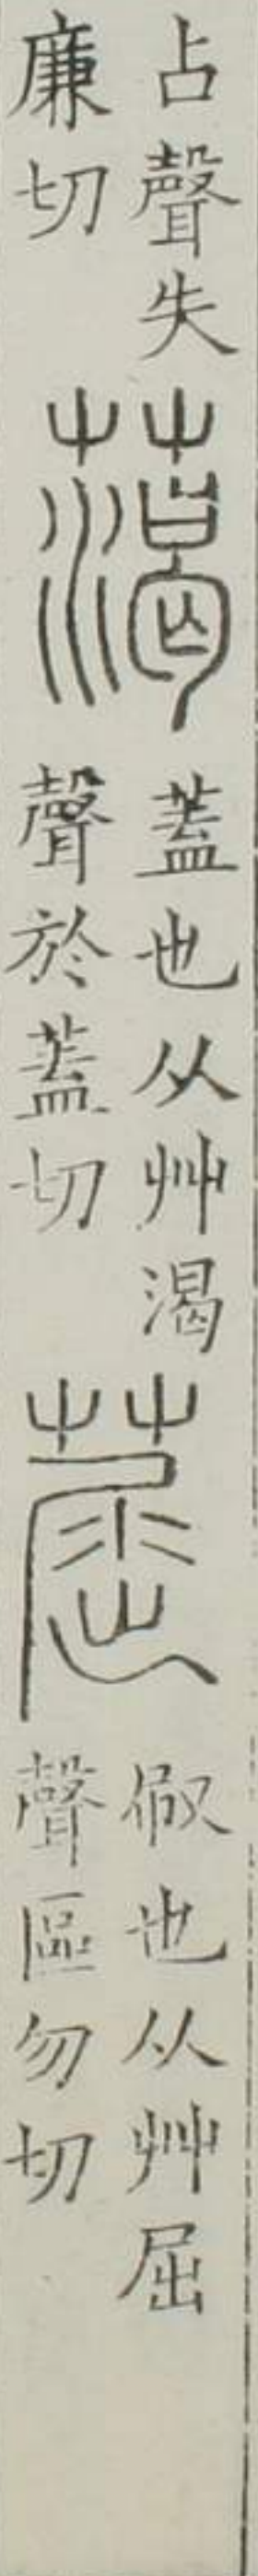 占聲失
廉切
蓋也从艸渴
聲於蓋切
䓛
㕞也从艸屈
聲區勿切